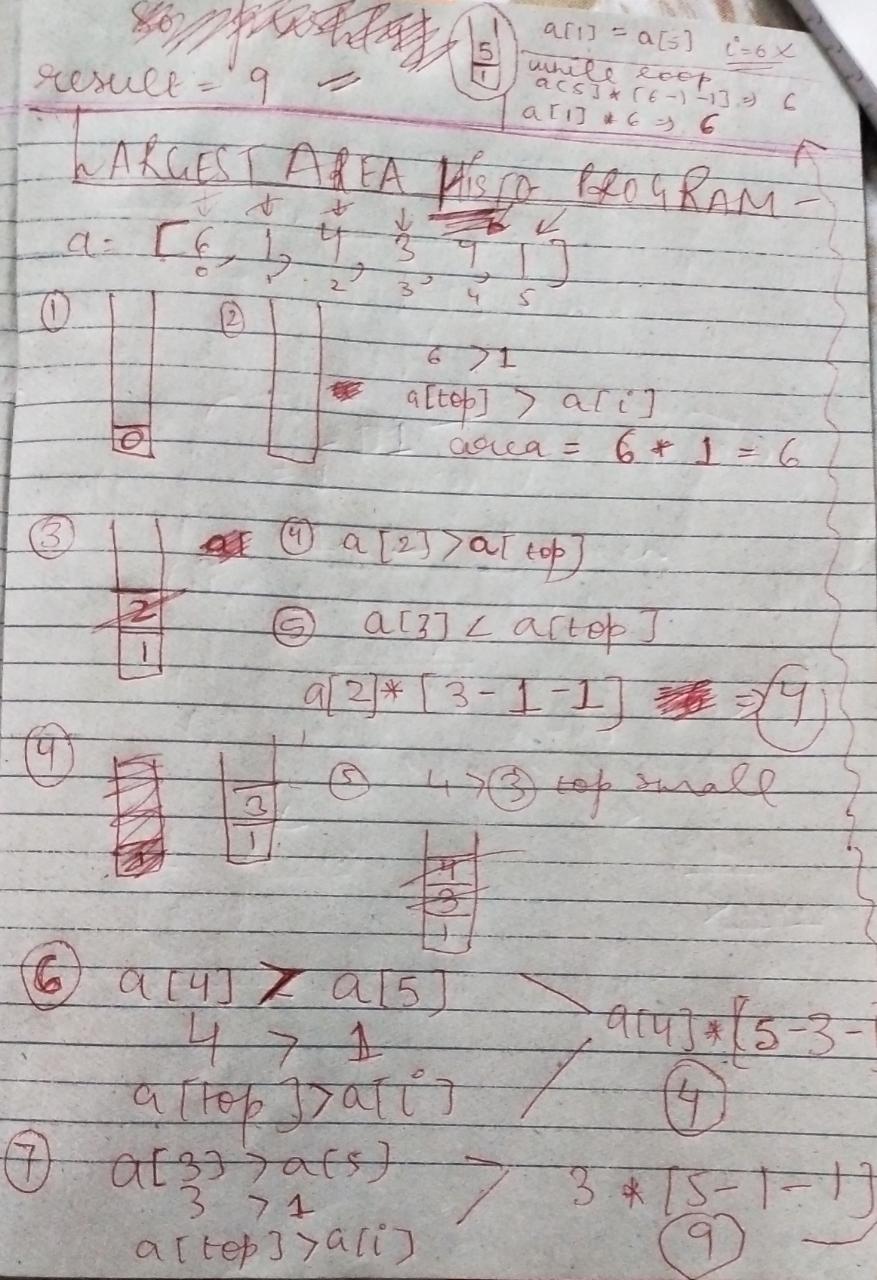 a[1] = a[5] i=6 x
5
1
while loop
a[5] * [6-1-1] => 6
a[1] * 6 => 6
result = 9 =
LARGEST AREA HISTO PROGRAM -
a = [6, 1, 4, 3, 4, 1]
0 1 2 3 4 5
① ②
6 > 1
a[top] > a[i]
0 1 area = 6 * 1 = 6
③ ④ a[2] > a[top]
2
1
⑤ a[3] < a[top]
a[2] * [3 - 1 - 1] => 4
④ ⑤ 4 > ③ top small
3
1
4
3
1
⑥ a[4] > a[5]
4 > 1
a[top] > a[i]
a[4] * [5-3-1
4
⑦ a[3] > a[5]
3 > 1
a[top] > a[i]
3 * [5-1-1]
9